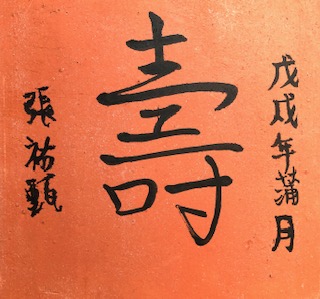 戊戌年蒲月
壽
張祐甄